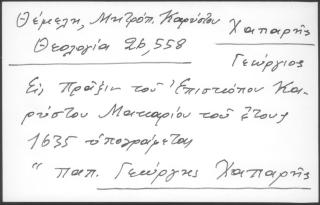 Θέμελη, Μητρόπ. Καρύστου Χαπαρῆς
Θεολογία 26, 558
Γεώργιος
Εἰς Πρᾶξιν τοῦ Ἐπισκόπου Κα-
ρύστου Μακαρίου τοῦ ἔτους
1635 ὑπογράφεται
" παπ. Γεώργης Χαπαρῆς